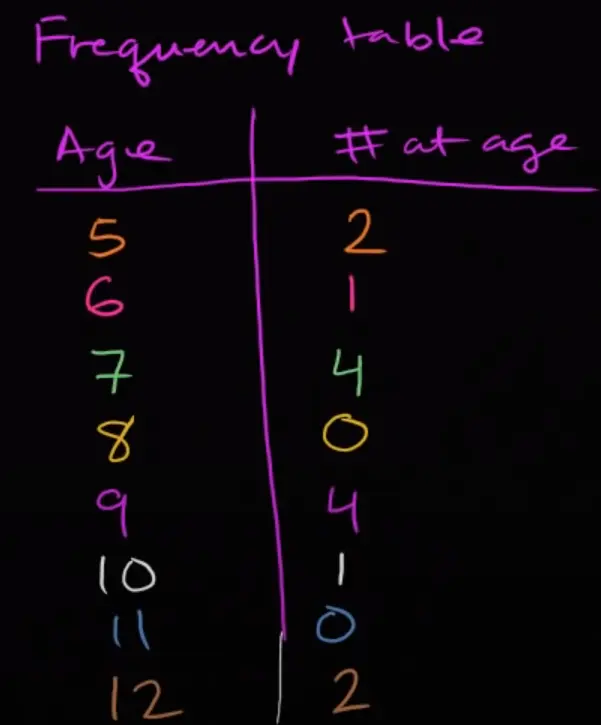 Frequency table
Age # at age
5 2
6 1
7 4
8 0
9 4
10 1
11 0
12 2